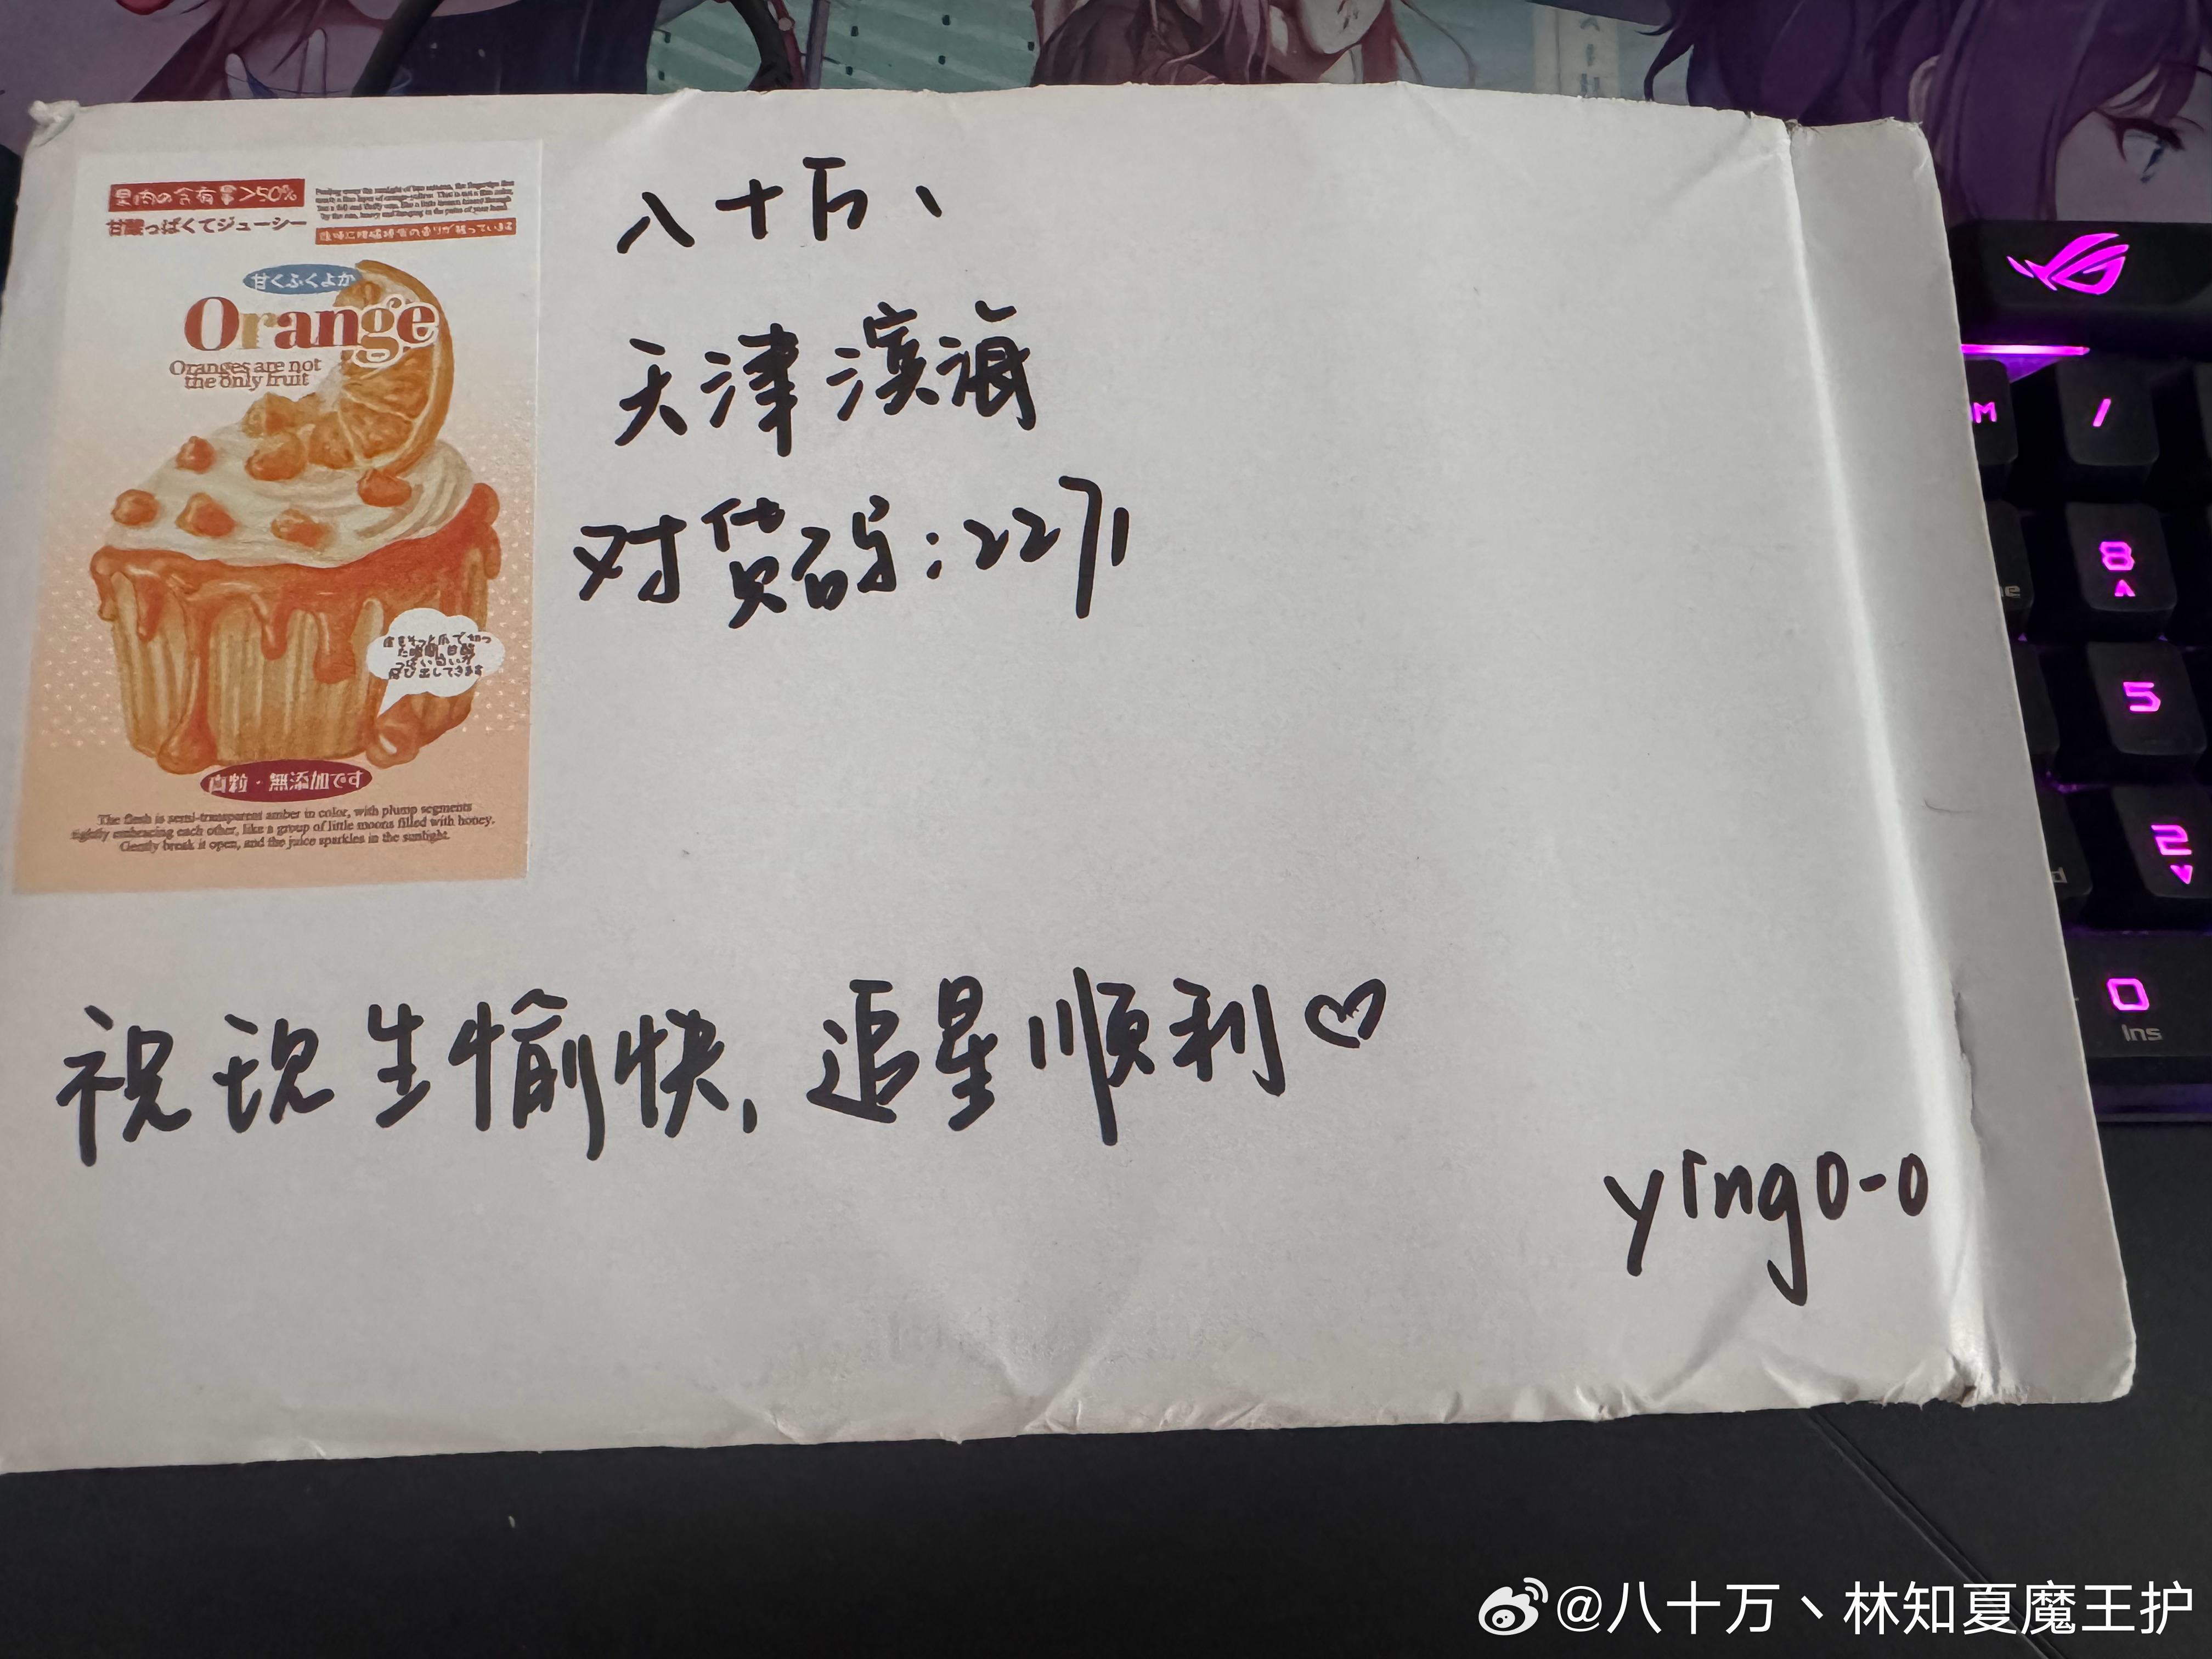 果肉の含有量>50%
甘酸っぱくてジューシー
甘くふくよか
Orange
Oranges are not
the only fruit
真粒・無添加です
The flesh is semi-transparent amber in color, with plump segments
tightly embracing each other, like a group of little moons filled with honey.
Gently break it open, and the juice sparkles in the sunlight.
八十万、
天津滨海
对货码:2271
祝现生愉快,追星顺利♡
yingo-o
M
/
8
5
2
0
Ins
@八十万丶林知夏魔王护